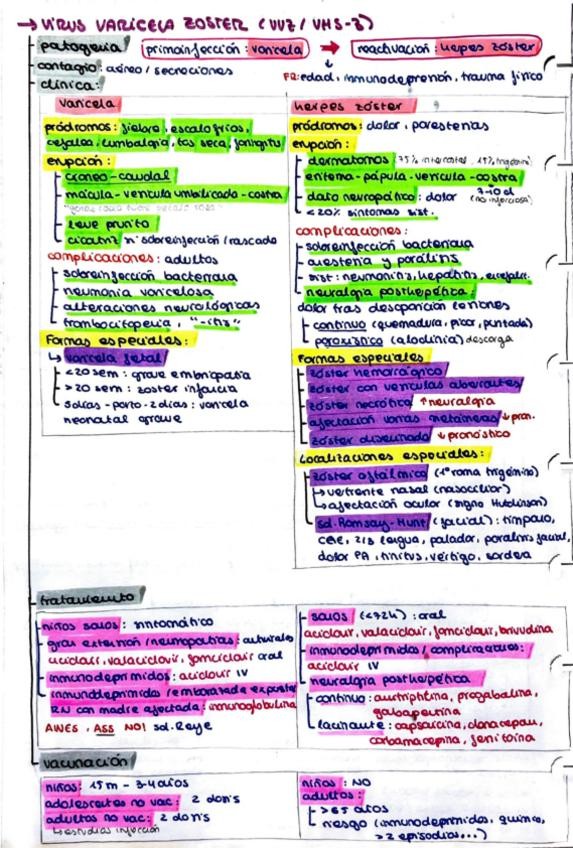 → VIRUS VARICELA ZOSTER (VVZ / VHS-3)
patogenia primoinfección: varicela → reactivación: herpes zóster
contagio: aéreo / secreciones
FR: edad, inmunodepresión, trauma físico
clínica:
varicela
pródromos: fiebre, escalofríos,
cefalea, lumbalgia, tos seca, faringitis
erupción:
craneo-caudal
mácula-vesícula umbilicada-costra
leve prurito
cicatriz si sobreinfección/rascado
complicaciones: adultos
sobreinfección bacteriana
neumonía varicelosa
alteraciones neurológicas
trombocitopenia, "-itis"
Formas especiales:
↳ varicela fetal
<20 sem: grave embriopatía
>20 sem: zoster infancia
5días-parto-2días: varicela
neonatal grave
herpes zóster
pródromos: dolor, parestesias
erupción:
dermatomos (75% intercostal, 15% trigémino)
eritema-pápula-vesícula-costra
dolor neuropático: dolor 7-10d (no infeccioso)
<20% síntomas sist.
complicaciones:
sobreinfección bacteriana
anestesia y parálisis
sist: neumonitis, hepatitis, encefalit.
neuralgia postherpética:
dolor tras desaparición lesiones
continuo (quemadura, picor, puntada)
paroxístico (alodinia) descarga
Formas especiales
zóster hemorrágico
zóster con vesículas aberrantes
zóster necrótico ↑neuralgia
afectación varias metámeras ↓pron.
zóster diseminado ↓pronóstico
Localizaciones especiales:
zóster oftálmico (1ª rama trigémino)
↳ vertiente nasal (nasociliar)
↳ afectación ocular (signo Hutchinson)
sd. Ramsay-Hunt (facial): tímpano,
CAE, 2/3 lengua, paladar, parálisis facial,
dolor PA, tinnitus, vértigo, sordera
tratamiento
niños sanos: sintomático
gran extensión/neuropatías: antivirales
aciclovir, valaciclovir, famciclovir oral
inmunodeprimidos: aciclovir IV
inmunodeprimidos/embarazada exposición
RN con madre afectada: inmunoglobulina
AINES, ASS NO! sd. Reye
sanos (<72h): oral
aciclovir, valaciclovir, famciclovir, brivudina
inmunodeprimidos/complicaciones:
aciclovir IV
neuralgia postherpética
continuo: amitriptilina, pregabalina,
gabapentina
lacinante: capsaicina, clonacepan,
carbamacepina, fenitoína
vacunación
niños: 15m - 3-4 años
adolescentes no vac: 2 dosis
adultos no vac: 2 dosis
↳ estudios infección
niños: NO
adultos:
>65 años
riesgo (inmunodeprimidos, quimio,
>2 episodios...)